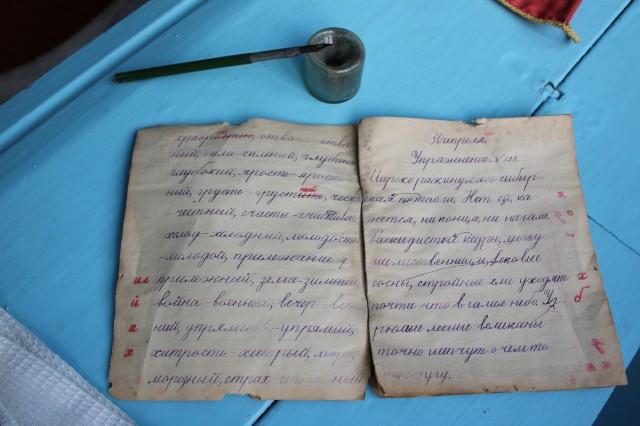 отвага-отваж
ный, сила-сильный, глубина-
глубокий, ярость-ярост
ный, грусть-грустный, чес
-честный, счастье-счастлив
холод-холодный, молодость
-молодой, прилежание-
прилежный,
война-военный, вечер-ве
ний, упрямство-упрямый,
хитрость-хитрый,
мородный, страх
ш
й
а
х
30 апреля.
Упражнение
Широко раскинулась сибир
ская тайга. Нет ей, ка
жется, ни конца, ни начала.
Раскидистые кедры, могу
чие лиственницы, вековые
сосны, стройные ели уходят
почти что в самое небо. Уг
рюмые лесные великаны
точно шепчут о чем-то
друг другу.